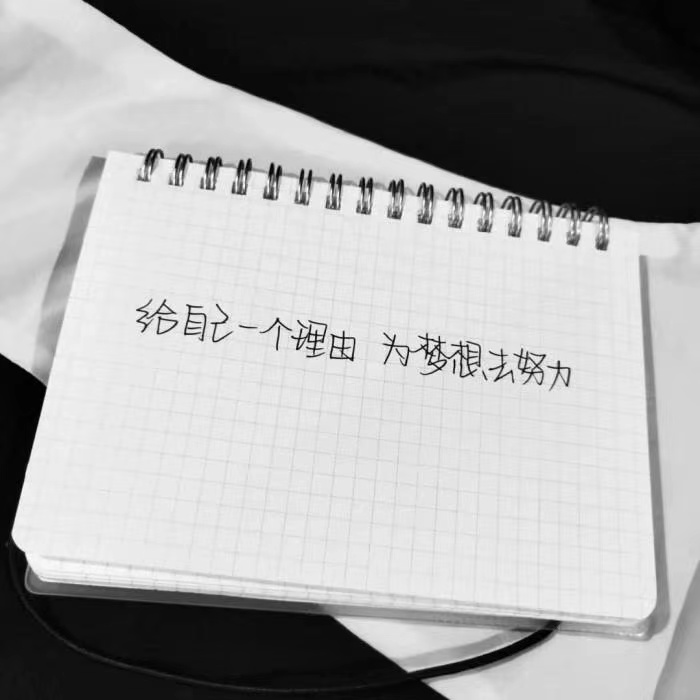 给自己一个理由 为梦想去努力